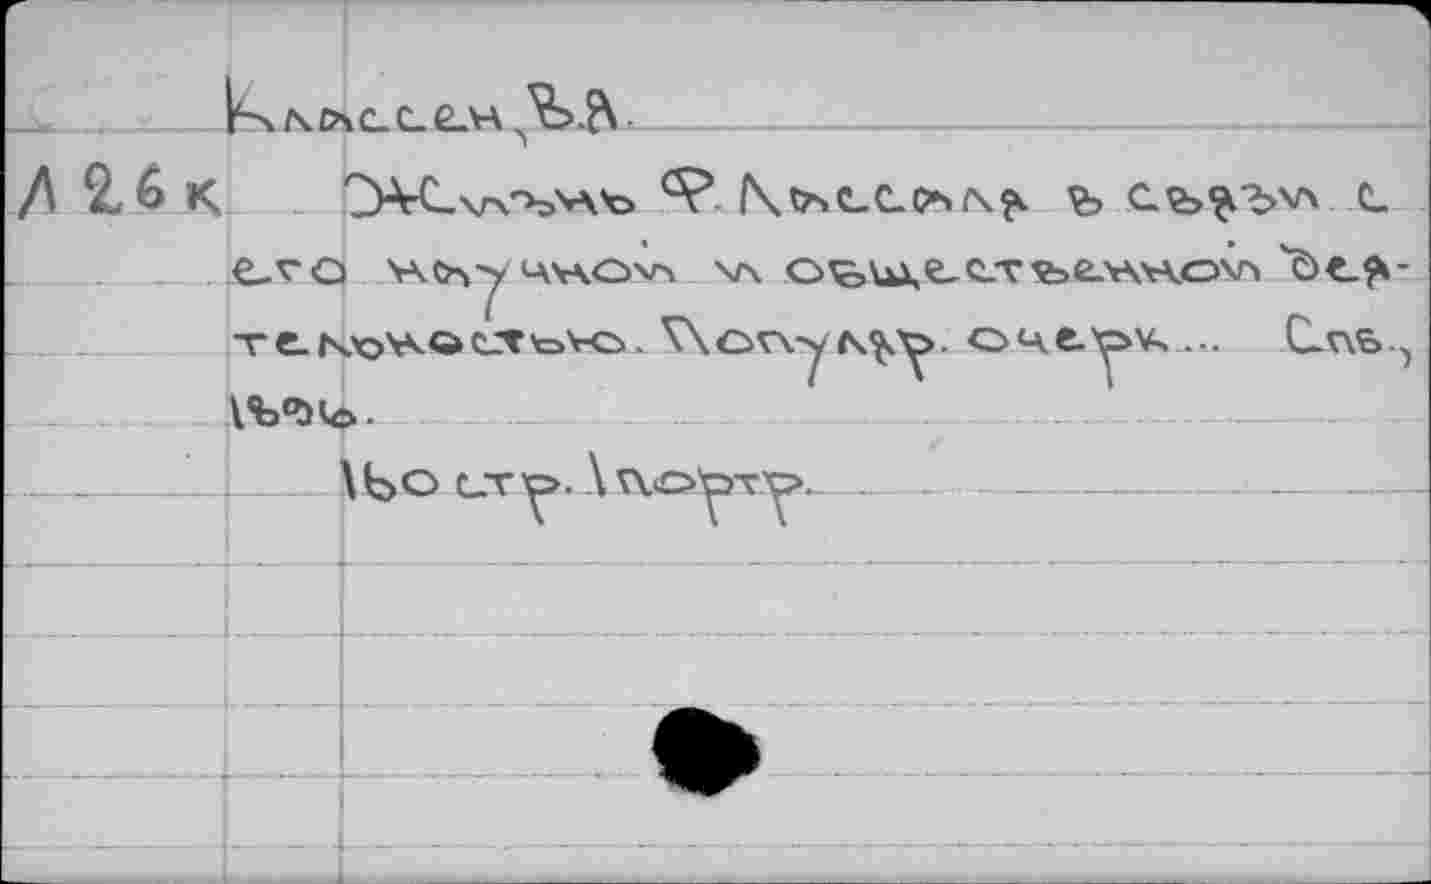 Классен, В.Я.
Л 26 к Жизнь Ф. Лассаля в связи с
его научной и общественной дея-
тельностью. Популяр. очерк... Спб.,
1896.
160 стр. 1 портр.